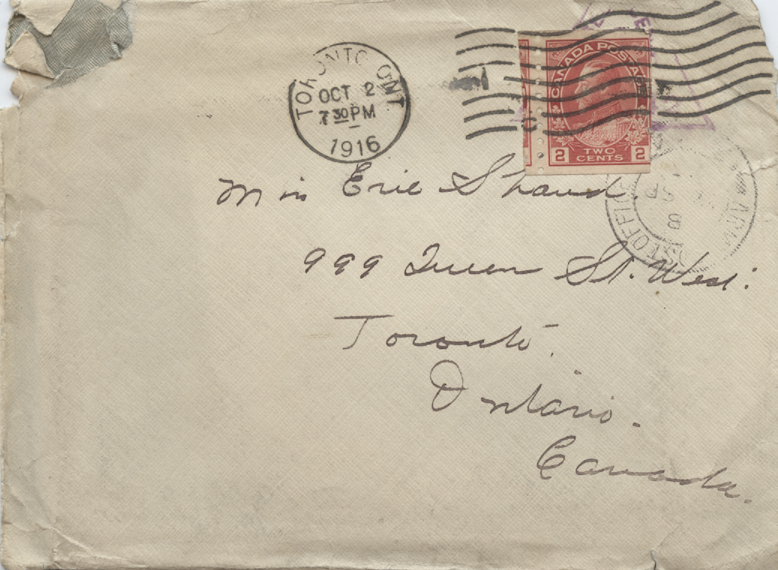 TORONTO ONT
OCT 2
7 30 PM
1916
CANADA POSTAGE
2 TWO CENTS 2
Miss Evie Shand
999 Queen St. West.
Toronto.
Ontario.
Canada.